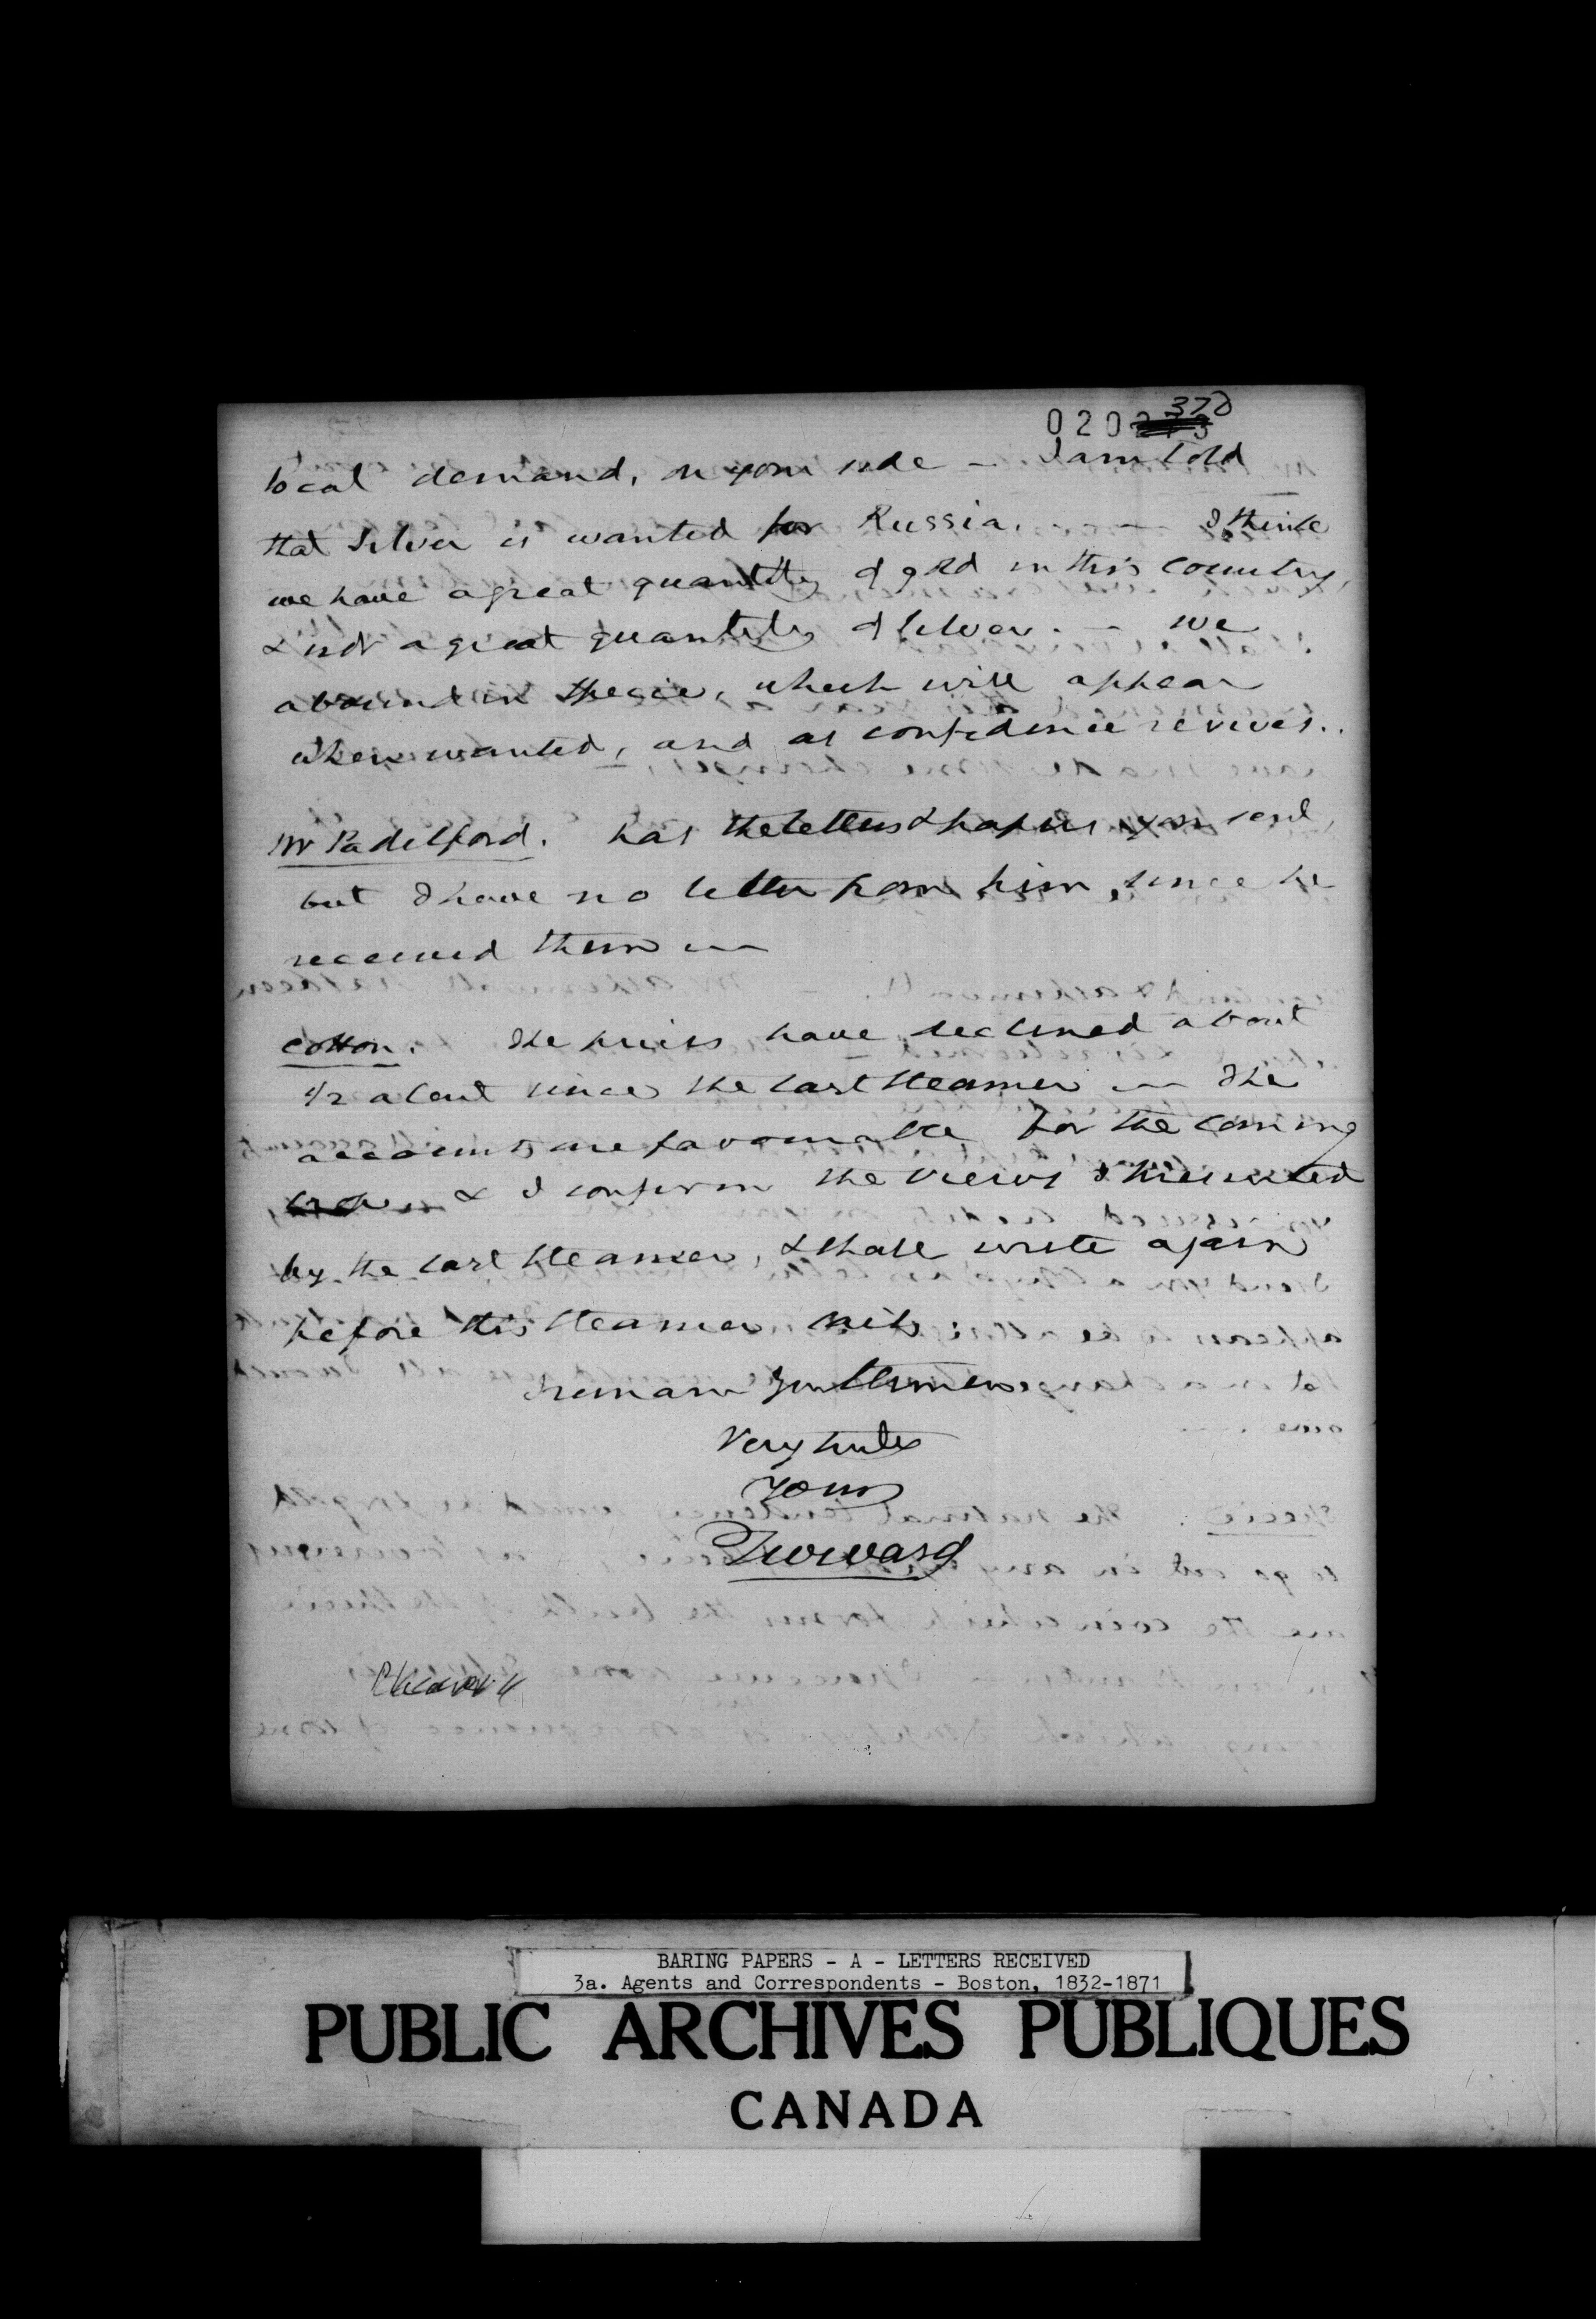 020 370
local demand, on your side - I am told
that Silver is wanted for Russia. - - I think
we have a great quantity of gold in this country,
& not a great quantity of Silver. - we
abound in specie, which will appear
when wanted, and as confidence revives..
Mr Padelford. has the letters & papers you send
but I have no letter from him since he
received them
Cotton. The prices have declined about
1/2 a Cent since the last steamer The
accounts are favourable for the coming
& I confirm the views I presented
by the last steamer, & shall write again
before this steamer sails
I remain Gentlemen
Very truly
Yours
TWWard
BARING PAPERS - A - LETTERS RECEIVED
3a. Agents and Correspondents - Boston, 1832-1871
PUBLIC ARCHIVES PUBLIQUES
CANADA